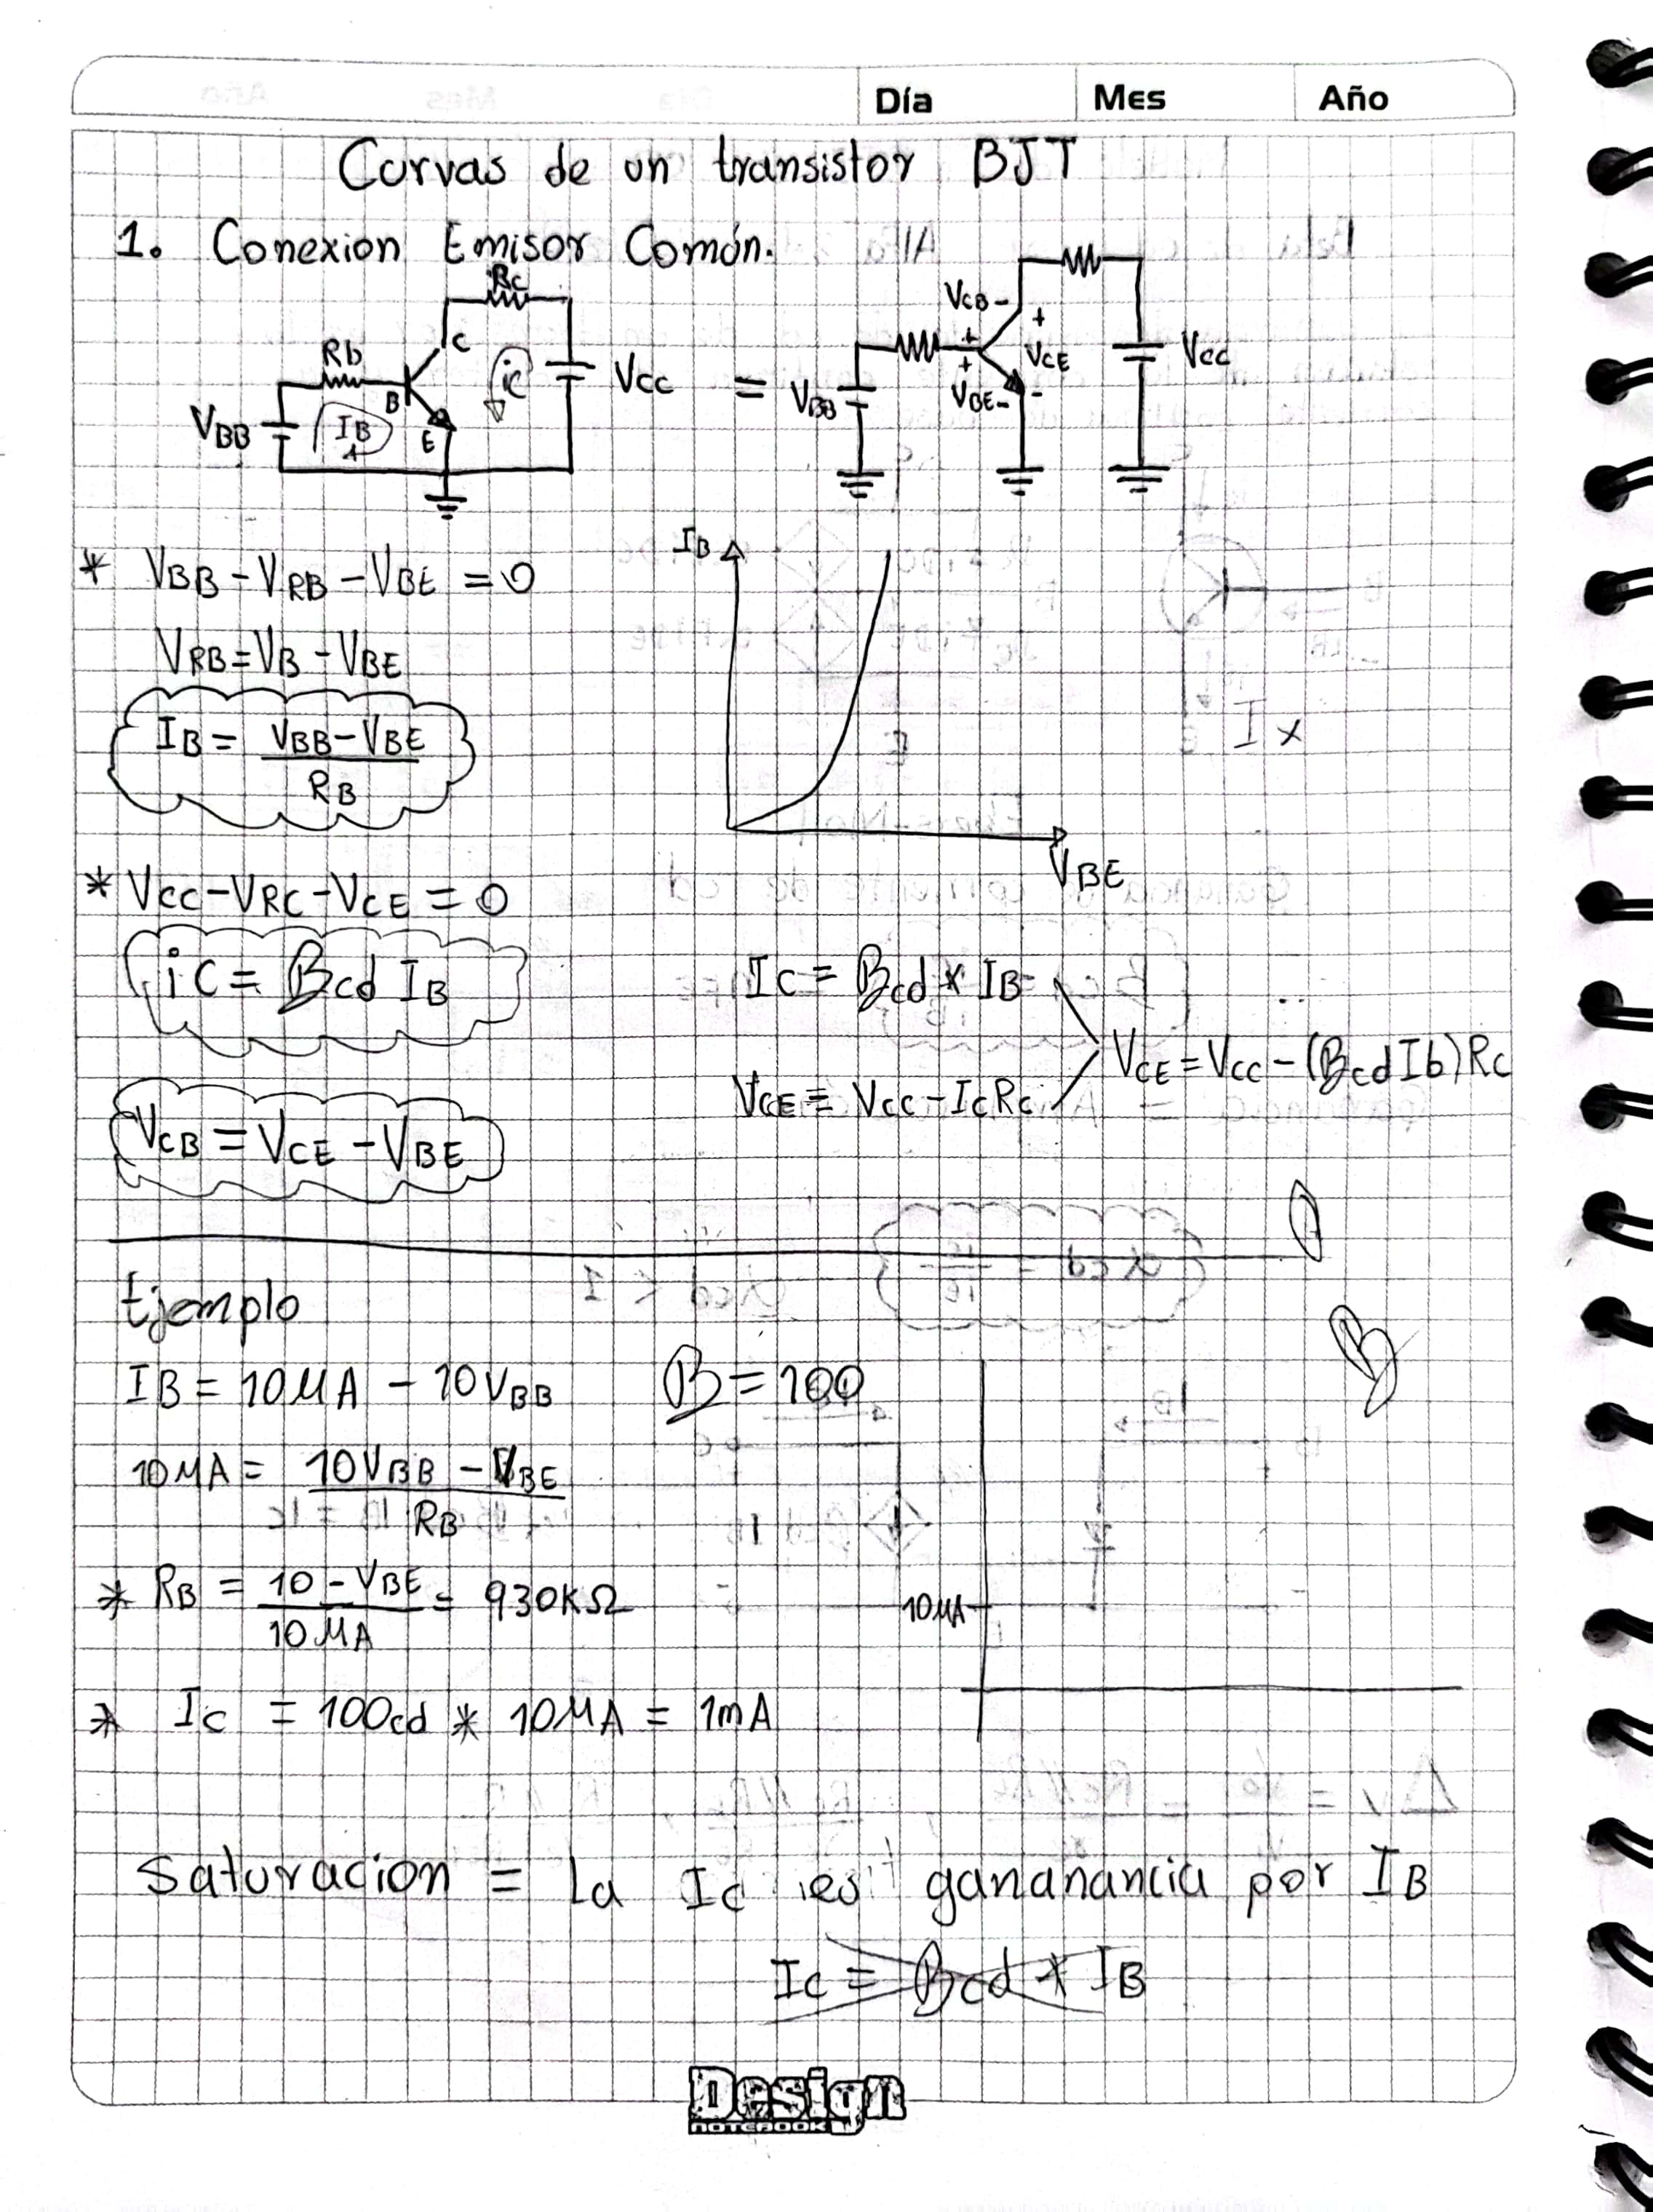 Día Mes Año
Curvas de un transistor BJT
1. Conexion Emisor Común.
Rc
Rb
C
B
E
ic
IB
VBB
VCC
=
VCB -
+
+
+
VCE
VBE -
-
VBB
VCC
* VBB - VRB - VBE = 0
VRB = VB - VBE
IB = VBB - VBE
RB
IB
VBE
I x
* VCC - VRC - VCE = 0
iC = Bcd IB
VCB = VCE - VBE
IC = Bcd * IB
VCE = VCC - IcRc
VCE = VCC - (Bcd Ib) Rc
Ejemplo
B
IB = 10MA - 10VBB B = 100
10MA = 10VBB - VBE
RB
* RB = 10 - VBE = 930KΩ
10MA
10MA
* Ic = 100cd * 10MA = 1mA
Saturacion = La Ic es gananancia por IB
Ic = Bcd * IB
Design
NOTEBOOK